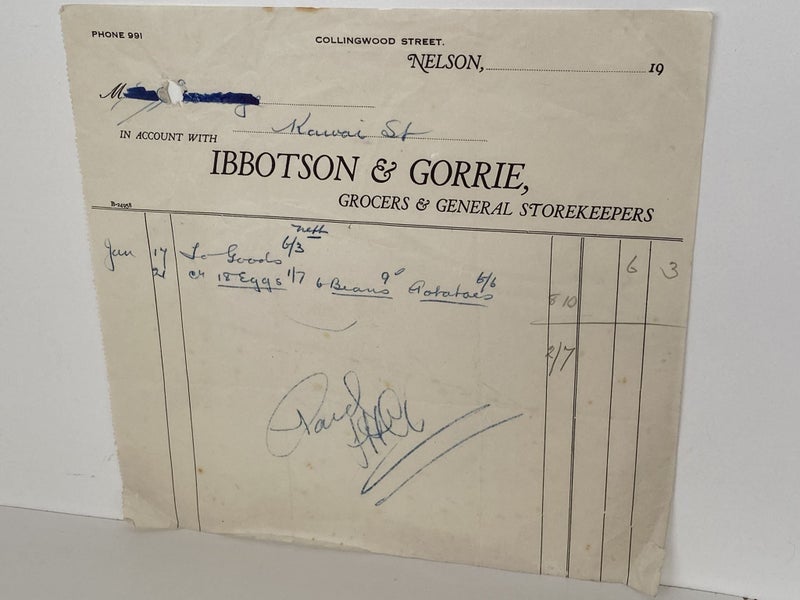 PHONE 991
COLLINGWOOD STREET.
NELSON, 19
M
Kawai St
IN ACCOUNT WITH
IBBOTSON & GORRIE,
GROCERS & GENERAL STOREKEEPERS
B-14958
nett
Jan 17 To Goods 6/3 6 3
21 Cr 18 Eggs 1/7 6 Beans 9d Potatoes 6/6 8 10
2/7
Paid